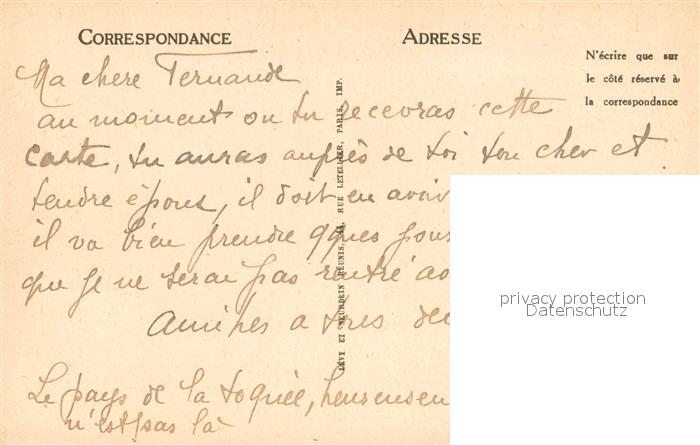 CORRESPONDANCE
ADRESSE
N'écrire que sur
le côté réservé à
la correspondance
Ma chere Fernande
au moment ou tu recevras cette
carte, tu auras auprès de toi ton cher et
tendre époux, il doit en avoir
il va bien prendre qques jours
que je ne serai pas rentré
Amitiés a tous deux
Le pays de la
n'est pas là
LÉVY ET NEURDEIN RÉUNIS, 44, RUE LETELLIER, PARIS, IMP.
privacy protection
Datenschutz